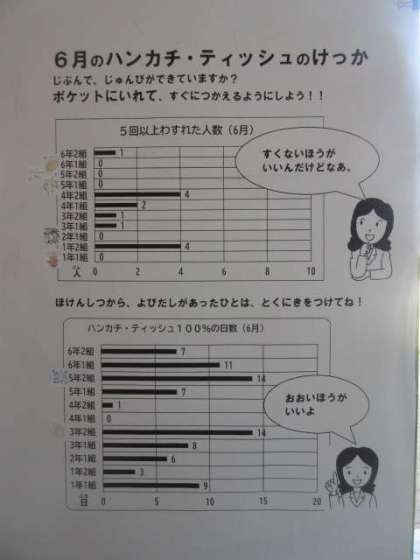 6月のハンカチ・ティッシュのけっか
じぶんで、じゅんびができていますか？
ポケットにいれて、すぐにつかえるようにしよう！！
5回以上わすれた人数（6月）
6年2組 1
6年1組 0
5年2組 0
5年1組 0
4年2組 4
4年1組 2
3年2組 1
3年1組 1
2年1組 0
1年2組 4
1年1組 0
人 0 2 4 6 8 10
すくないほうが
いいんだけどなあ。
ほけんしつから、よびだしがあったひとは、とくにきをつけてね！
ハンカチ・ティッシュ100％の日数（6月）
6年2組 7
6年1組 11
5年2組 14
5年1組 7
4年2組 1
4年1組 0
3年2組 14
3年1組 8
2年1組 6
1年2組 3
1年1組 9
日 0 5 10 15 20
おおいほうが
いいよ